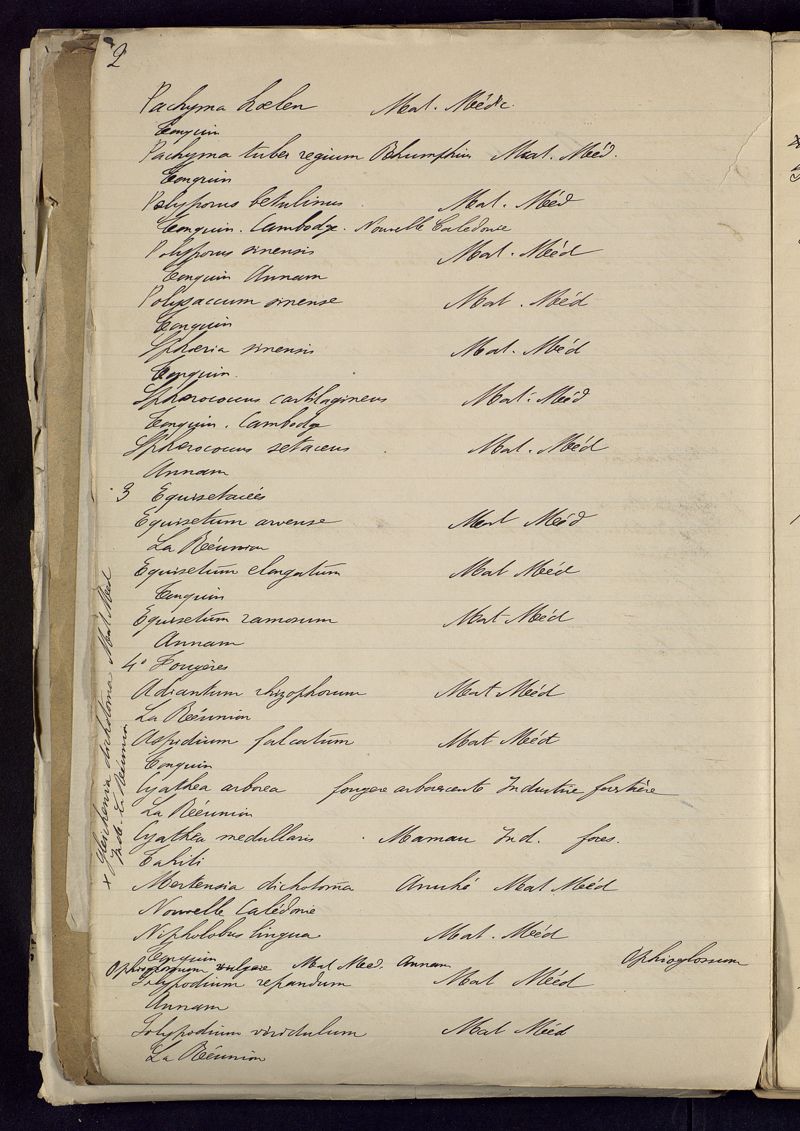 2
Pachyma hoelen Mat. Médic.
Tonquin
Pachyma tuber regium Rhumphius Mat. Méd.
Tonquin
Polyporus betulinus Mat. Méd
Tonquin. Cambodge. Nouvelle Calédonie
Polyporus sinensis Mat. Méd
Tonquin Annam
Polysaccum sinense Mat. Méd
Tonquin
Sphoeria sinensis Mat. Méd
Tonquin.
Sphoerococcus cartilagineus Mat. Méd
Tonquin. Cambodge
Sphoerococcus setaceus Mat. Méd
Annam
3 Equisetacées
Equisetum arvense Mat Méd
La Réunion
Equisetum elongatum Mat Méd
Tonquin
Equisetum ramosum Mat Méd
Annam
4° Fougères
Adiantum rhizophorum Mat Méd
La Réunion
Aspidium falcatum Mat Méd
Tonquin
Cyathea arborea fougère arborescente Industrie forestière
La Réunion
Cyathea medullaris Mamau Ind. fores.
Tahiti
x Gleichenia dichotoma Mat Med
Inde. La Réunion
Mertensia dichotoma Anuhé Mat Méd
Nouvelle Calédonie
Nipholobus lingua Mat. Méd
Tonquin
Ophioglossum vulgare Mat Med. Annam Ophioglossum
Polypodium repandum Mat Méd
Annam
Polypodium viridulum Mat Méd
La Réunion